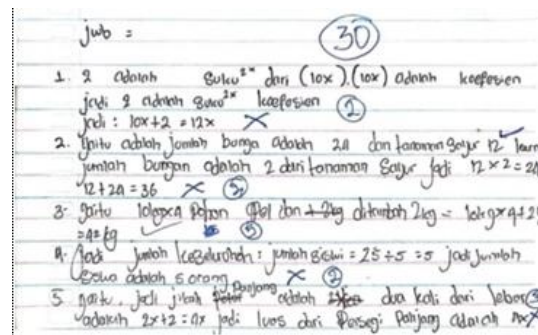 jwb : 30
1. 2 adalah suku²ˣ dari (10x).(10x) adalah koefesien
jadi 2 adalah suku²ˣ koefesien 2
jadi : 10x+2 = 12x
2. yaitu adalah jumlah bunga adalah 24 dan tanaman sayur 12
jumlah bungan adalah 2 dari tanaman sayur jadi 12 x 2 = 24
12+24 = 36
3. yaitu 10kg x 4 pohon apel dan ditambah 2kg =
= 42 kg
4. jadi jumlah keseluruhan : jumlah siswi = 25 ÷ 5 = 5 jadi jumlah
siswa adalah 5 orang 2
5. yaitu, jadi jikah panjang adalah dua kali dari lebar
adalah 2x+2 = 4x jadi luas dari persegi panjang adalah